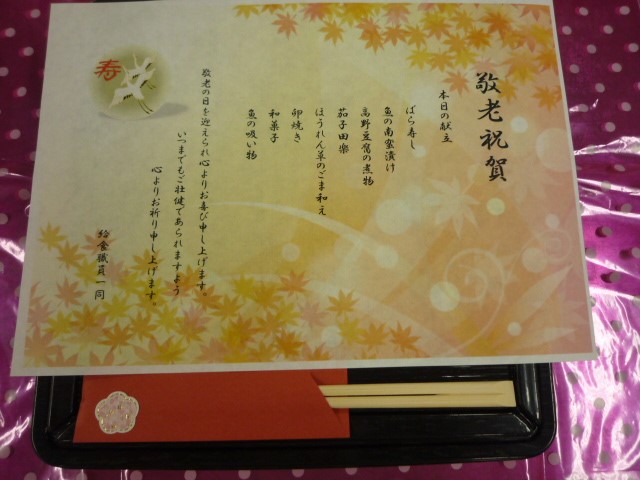 敬老祝賀
本日の献立
ばら寿し
魚の南蛮漬け
高野豆腐の煮物
茄子田楽
ほうれん草のごま和え
卵焼き
和菓子
魚の吸い物
敬老の日を迎えられ心よりお喜び申し上げます。
いつまでもご壮健であられますよう
心よりお祈り申し上げます。
給食職員一同
寿